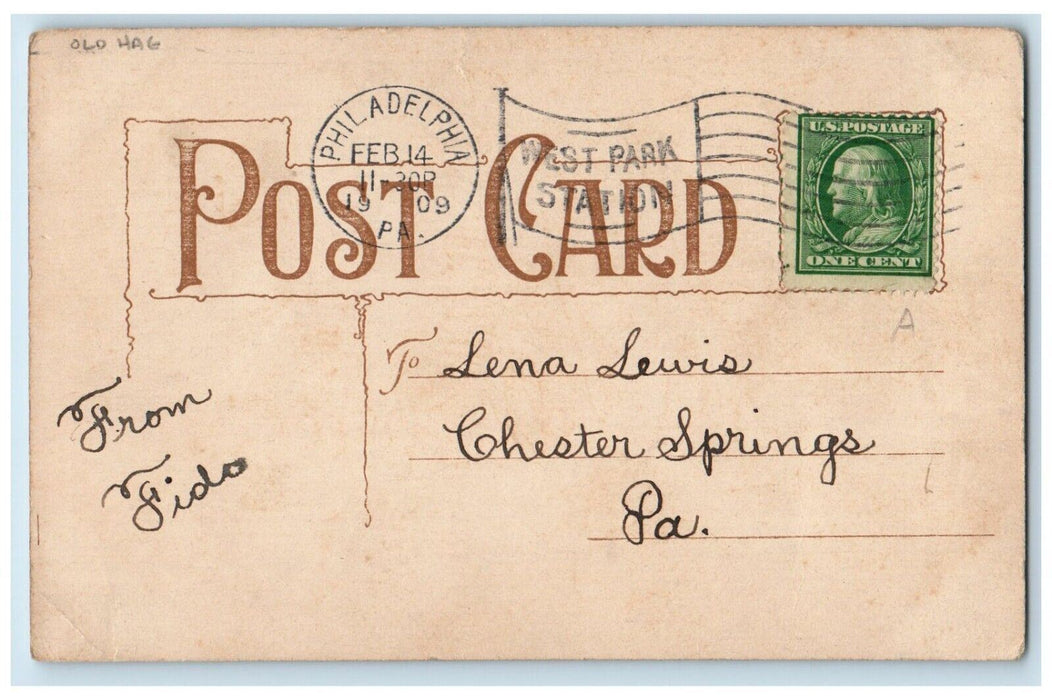 OLD HAG
PHILADELPHIA
FEB 14
11-30P
19 09
PA.
WEST PARK
STATION
U.S. POSTAGE
ONE CENT
POST CARD
A
To Lena Lewis
Chester Springs
Pa.
From
Fido